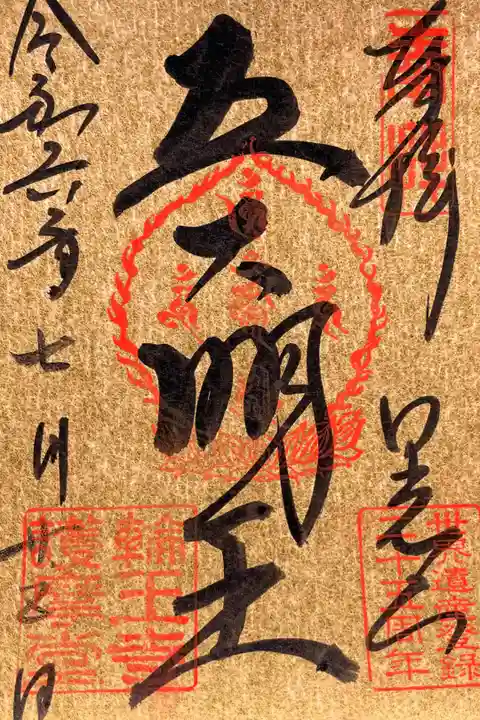 奉拝 日光山
世界遺産登録
二十五周年
五大明王
輪王寺
護摩堂
令和六年七月十五日